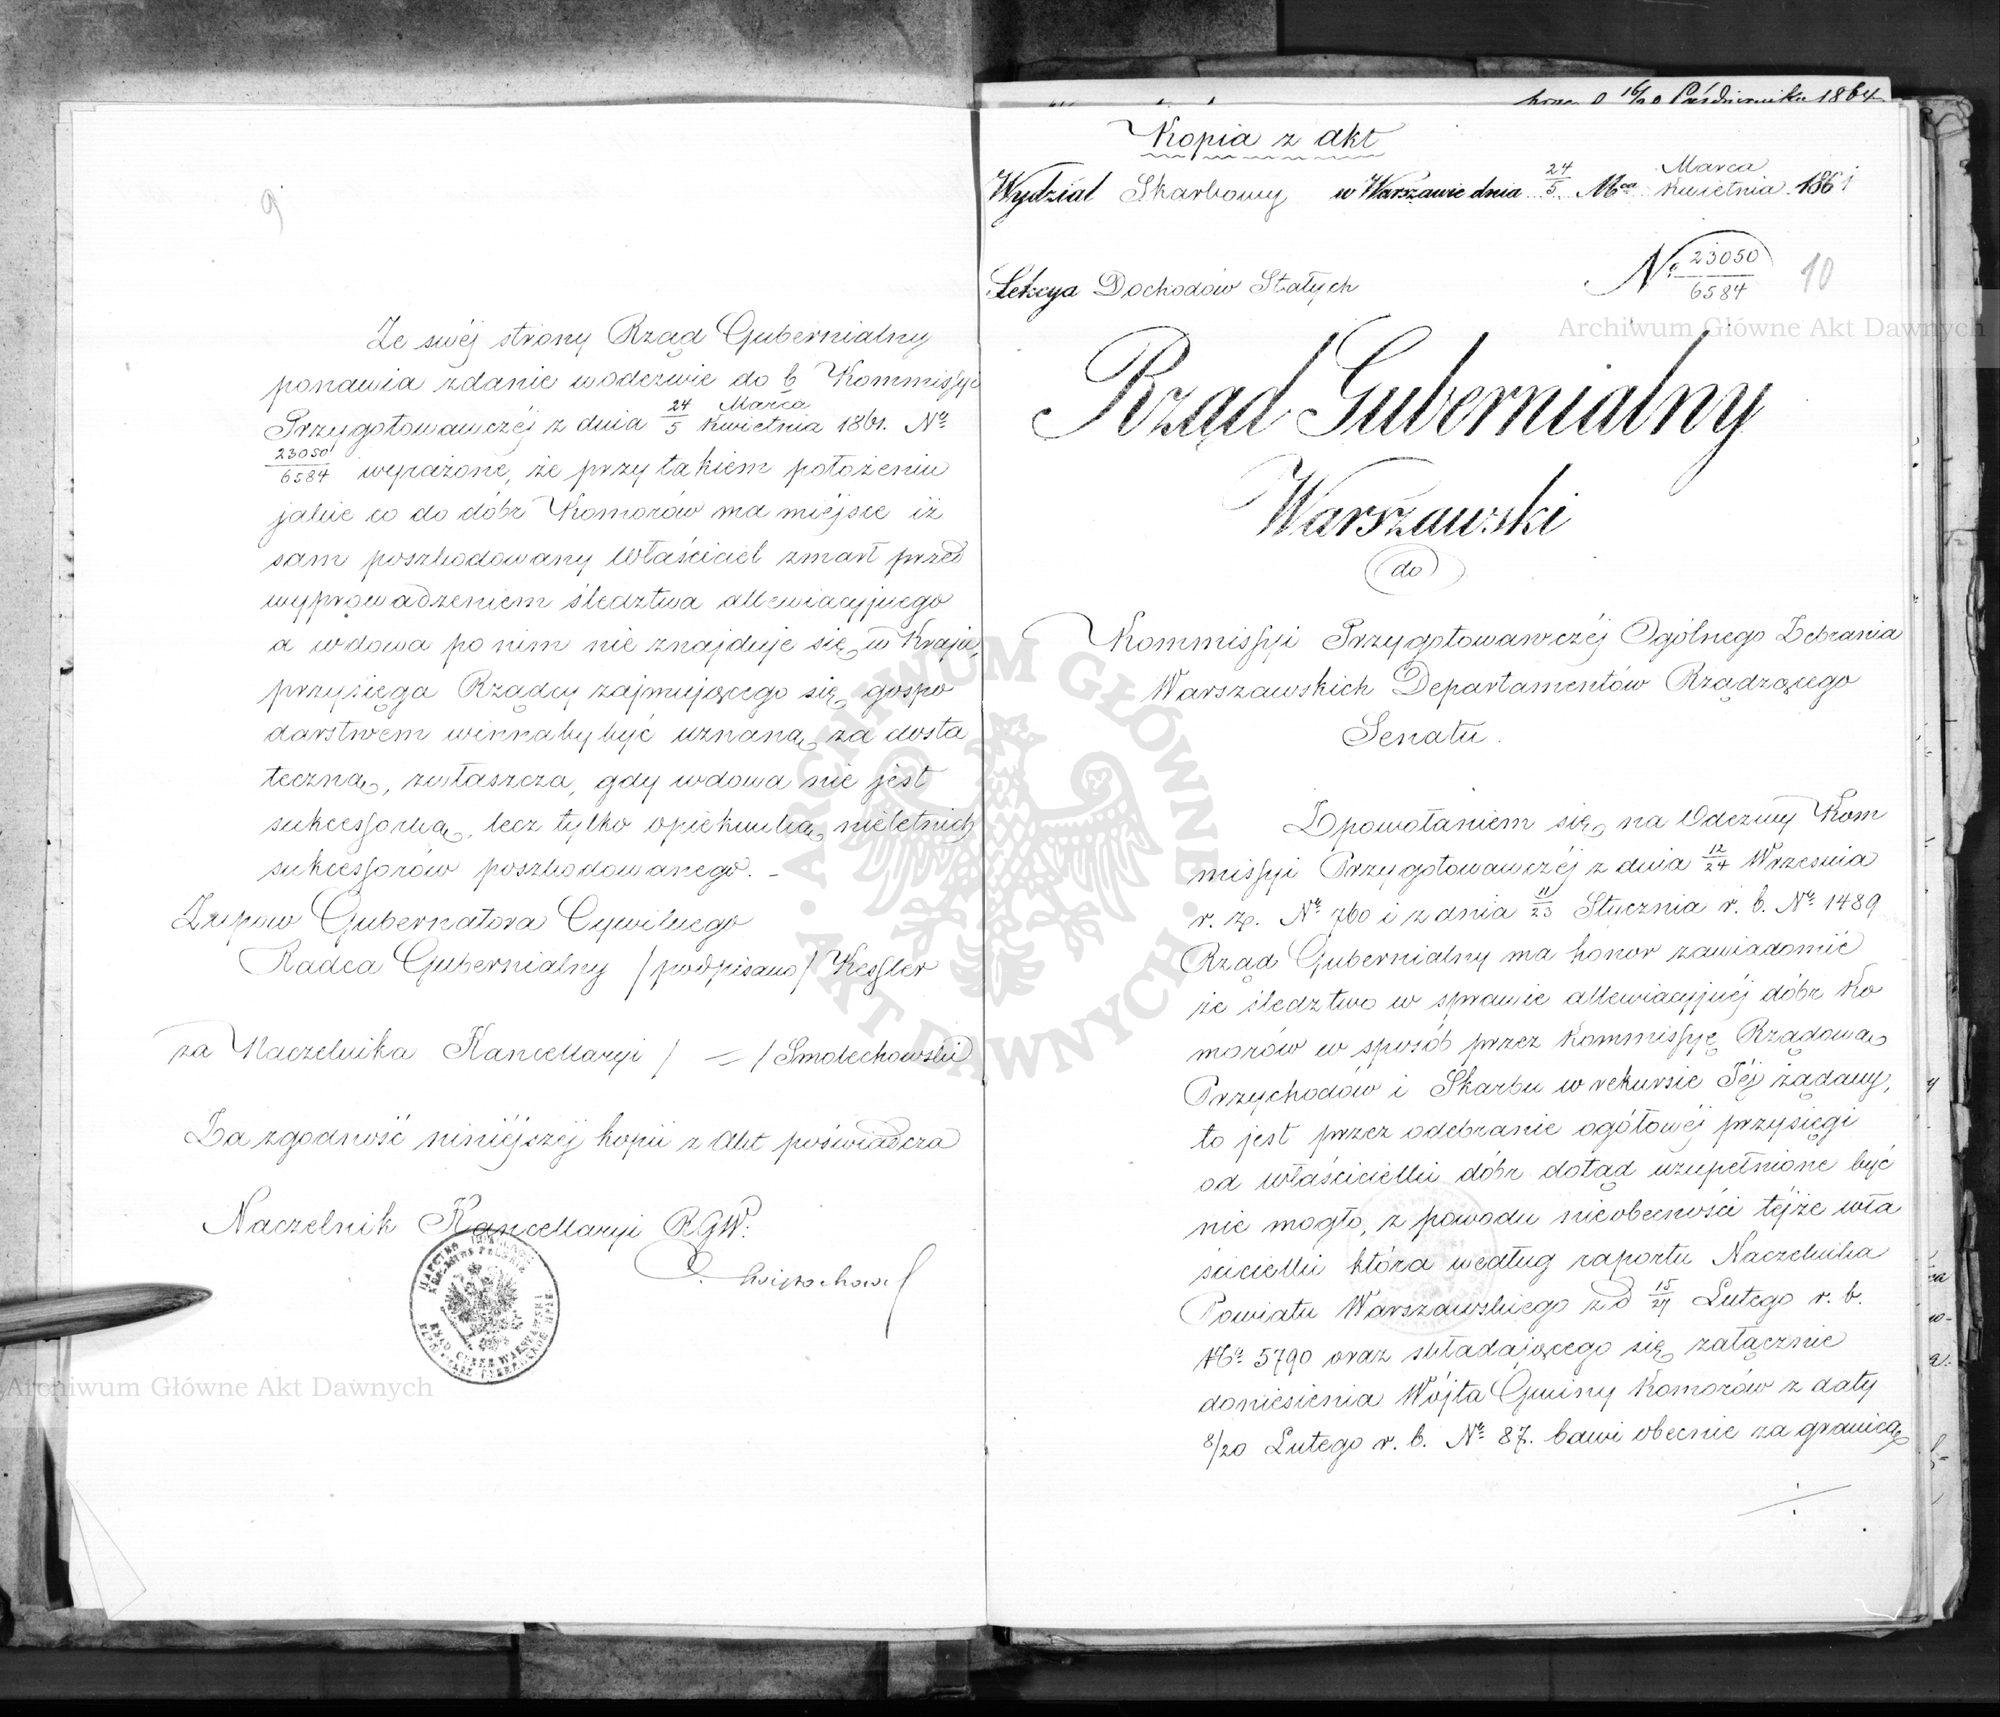 9
Ze swéj strony Rząd Gubernialny
ponawia zdanie w odezwie do b Kommissyi
Przygotowawczéj z dnia 24/5 Marca/Kwietnia 1861. Nº
23050/6584 wyrażone, że przy takiem położeniu
jakie co do dóbr Komorów ma miéjsce iż
sam poszkodowany właściciel zmarł przed
wyprowadzeniem śledztwa allewiacyjnego
a wdowa po nim nie znajduje się w Kraju,
przysięga Rządcy zajmującego się gospo
darstwem winnaby być uznaną za dosta
teczną, zwłaszcza, gdy wdowa nie jest
sukcessorką, lecz tylko opiekunką nieletnich
sukcessorów poszkodowanego. –
Zupow Gubernatora Cywilnego
Radca Gubernialny /podpisano/ Kessler
za Naczelnika Kancellaryi / — / Smolechowski
Za zgodność niniéjszéj kopii z Akt poświadcza
Naczelnik Kancellaryi RGW.
Archiwum Główne Akt Dawnych
16/28 Października 1864
Kopia z akt
Wydział Skarbowy w Warszawie dnia 24/5 Mca Marca/Kwietnia 1861
Sekcya Dochodów Stałych
Nº 23050/6584
10
Archiwum Główne Akt Dawnych
Rząd Gubernialny
Warszawski
do
Kommissyi Przygotowawczéj Ogólnego Zebrania
Warszawskich Departamentów Rządzącego
Senatu.
Z powołaniem się na Odezwy Kom
missyi Przygotowawczéj z dnia 12/24 Września
r. z. Nº 760 i z dnia 11/23 Stycznia r. b. Nº 1489
Rząd Gubernialny ma honor zawiadomić
że śledztwo w sprawie allewiacyjnéj dóbr Ko
morów w sposób przez Kommissyę Rządową
Przychodów i Skarbu w rekursie Jéj żądany,
to jest przez odebranie ogółowéj przysięgi
od właścicielki dóbr dotąd uzupełnione być
nie mogło, z powodu nieobecności téjże wła
ścicielki która według raportu Naczelnika
Powiatu Warszawskiego z d 15/27 Lutego r. b.
Nº 5790 oraz składającego się załącznie
doniesienia Wójta Gminy Komorów z daty
8/20 Lutego r. b. Nº 87. bawi obecnie za granicą
ARCHIWUM GŁÓWNE AKT DAWNYCH